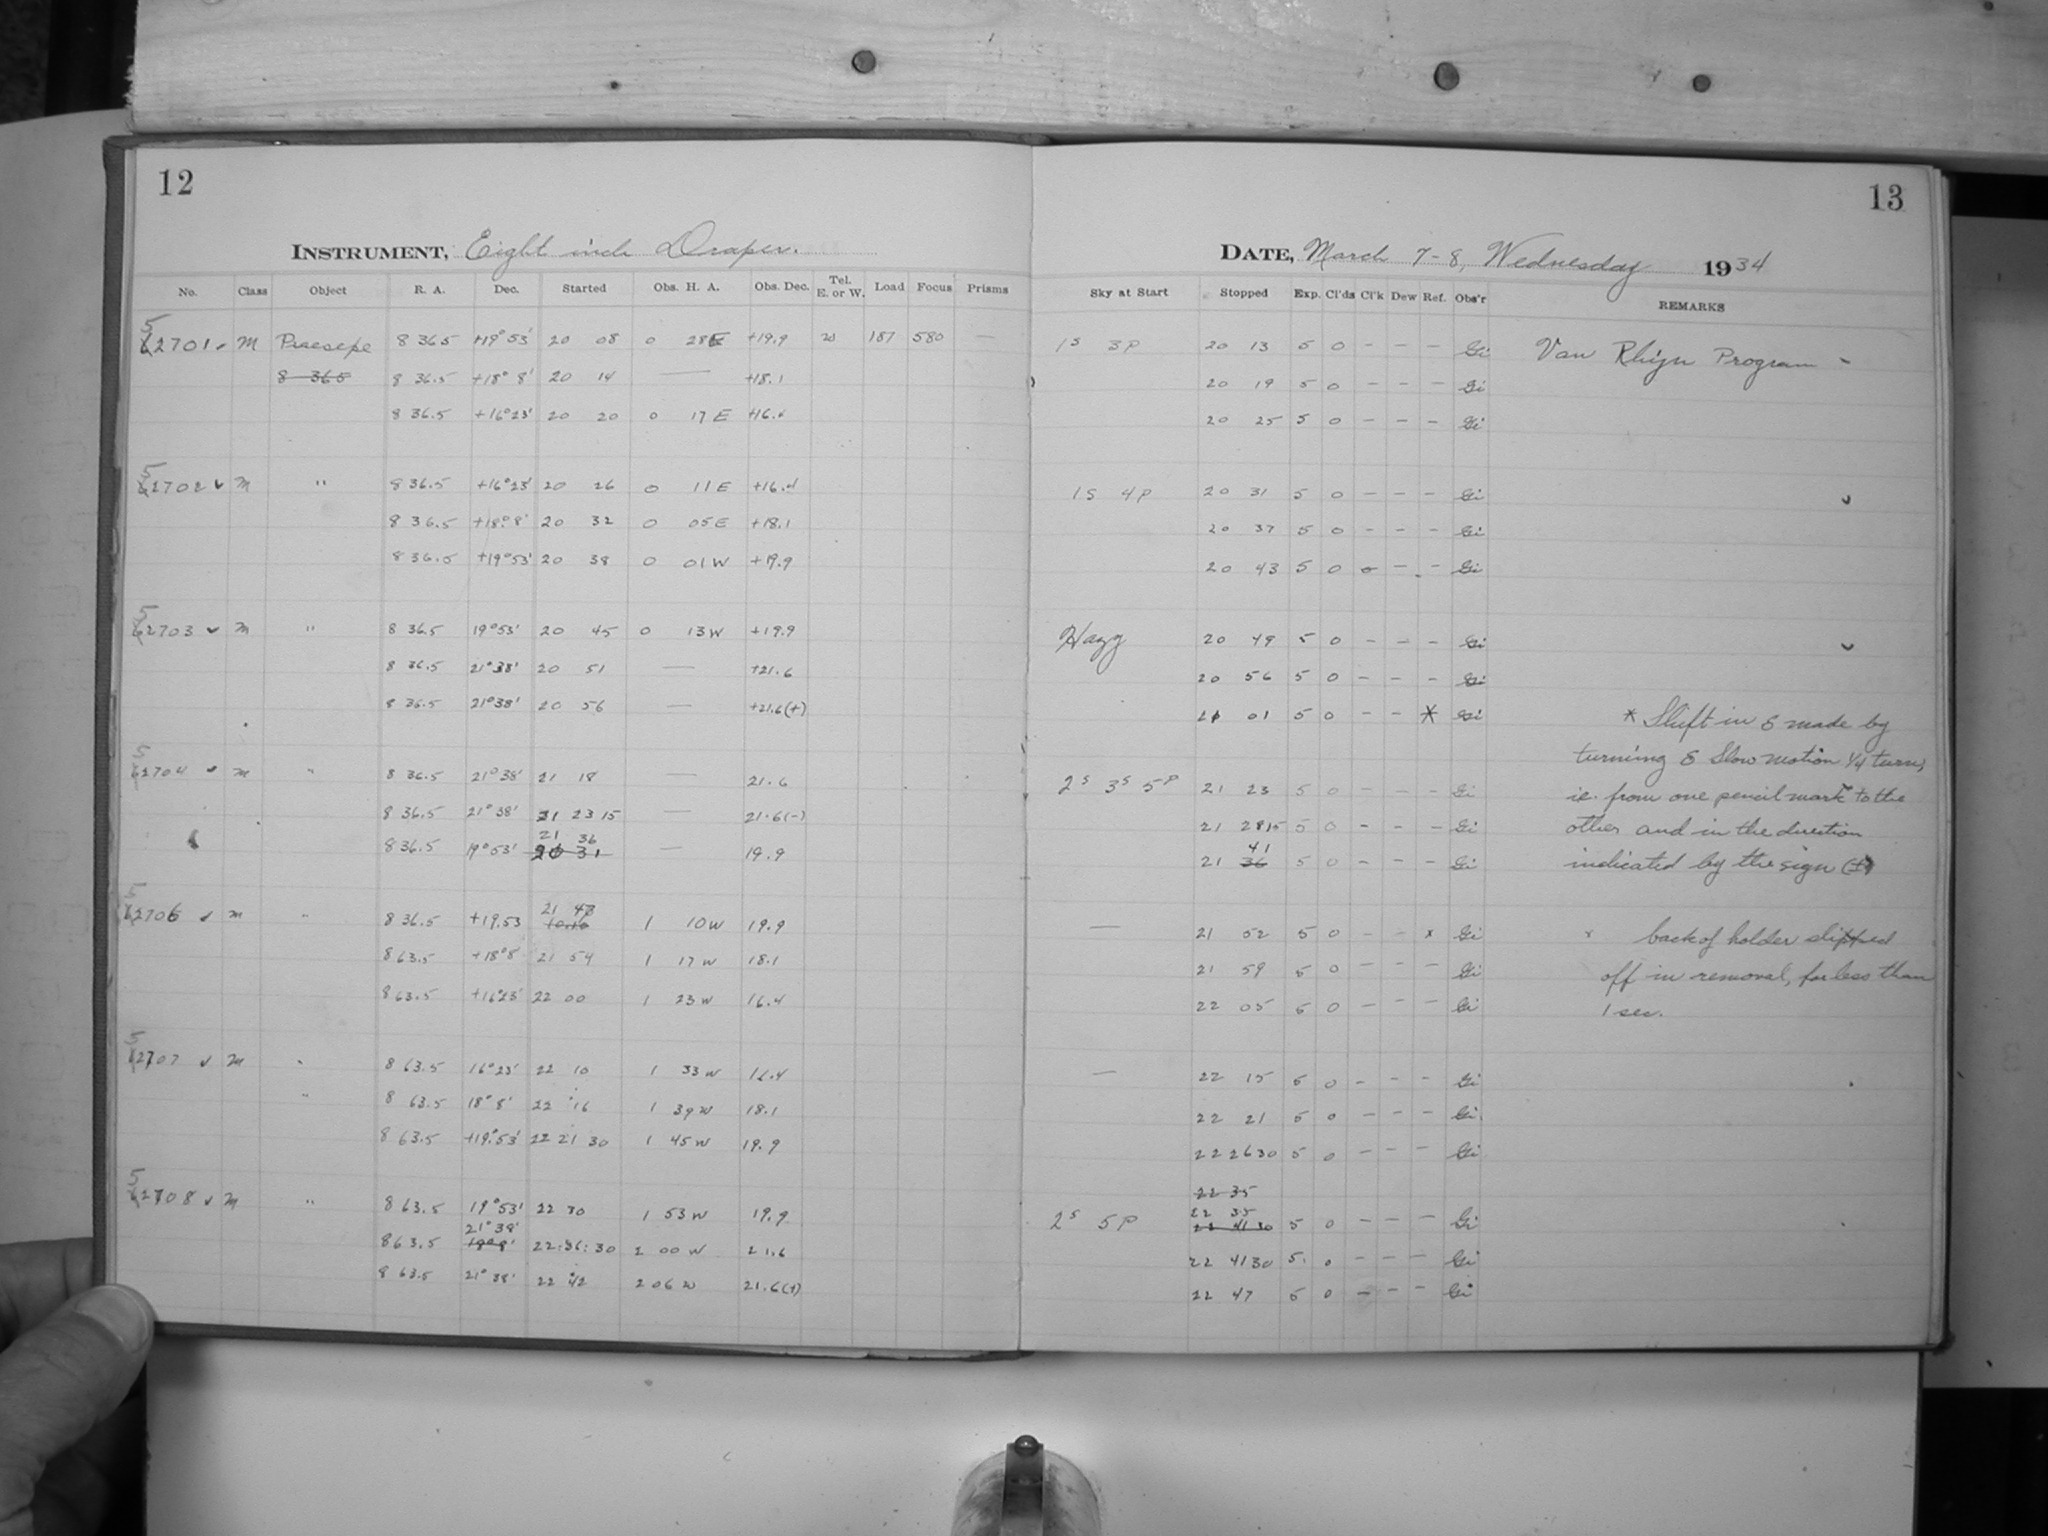 12
INSTRUMENT, Eight inch Draper.
No. Class Object R. A. Dec. Started Obs. H. A. Obs. Dec. Tel. E. or W. Load Focus Prisms
52701 M Praesepe 8 36.5 +19°53' 20 08 0 28E +19.9 W 187 580 —
8 36.5 8 36.5 +18°8' 20 14 — +18.1
8 36.5 +16°23' 20 20 0 17 E +16.4
52702 M " 8 36.5 +16°23' 20 26 0 11 E +16.4
8 36.5 +18°8' 20 32 0 05 E +18.1
8 36.5 +19°53' 20 38 0 01 W +19.9
52703 M " 8 36.5 19°53' 20 45 0 13 W +19.9
8 36.5 21°38' 20 51 — +21.6
8 36.5 21°38' 20 56 — +21.6(+)
52704 M " 8 36.5 21°38' 21 18 — 21.6
8 36.5 21°38' 21 23 15 — 21.6(-)
21 36
8 36.5 19°53' 31 — 19.9
52706 M " 8 36.5 +19.53 21 47 1 10 W 19.9
8 63.5 +18°8' 21 54 1 17 W 18.1
8 63.5 +16°23' 22 00 1 23 W 16.4
52707 M " 8 63.5 16°23' 22 10 1 33 W 16.4
" 8 63.5 18°8' 22 16 1 39 W 18.1
8 63.5 +19°53' 22 21 30 1 45 W 19.9
52708 M " 8 63.5 19°53' 22 30 1 53 W 19.9
21°38'
8 63.5 18°8' 22:36:30 2 00 W 21.6
8 63.5 21°38' 22 42 2 06 W 21.6(+)
13
DATE, March 7-8, Wednesday 1934
Sky at Start Stopped Exp. Cl'ds Cl'k Dew Ref. Obs'r REMARKS
1S 3P 20 13 5 0 - - - Gi Van Rhijn Program
20 19 5 0 - - - Gi
20 25 5 0 - - - Gi
1S 4P 20 31 5 0 - - - Gi
20 37 5 0 - - - Gi
20 43 5 0 0 - - Gi
Hazy 20 49 5 0 - - - Gi
20 56 5 0 - - - Gi
21 01 5 0 - - * Gi * Shift in δ made by
turning δ slow motion 1/4 turn,
2S 3S 5P 21 23 5 0 - - - Gi ie. from one pencil mark to the
21 28 15 5 0 - - - Gi other and in the direction
41
21 36 5 0 - - - Gi indicated by the sign (±)
— 21 52 5 0 - - x Gi x back of holder slipped
21 59 5 0 - - - Gi off in removal, for less than
22 05 5 0 - - - Gi 1 sec.
— 22 15 5 0 - - - Gi
22 21 5 0 - - - Gi
22 26 30 5 0 - - - Gi
22 35
22 35
2S 5P 22 41 30 5 0 - - - Gi
22 41 30 5 0 - - - Gi
22 47 5 0 - - - Gi